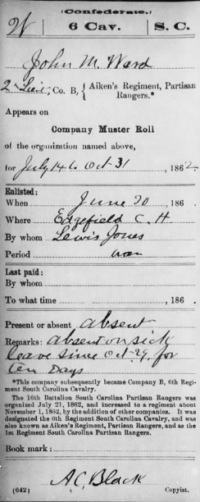 (Confederate.)
W 6 Cav. S. C.
John M. Ward
2 Lieut, Co. B, Aiken's Regiment, Partisan Rangers.*
Appears on
Company Muster Roll
of the organization named above,
for July 14 to Oct 31, 1862.
Enlisted:
When June 20, 186 .
Where Edgefield C. H
By whom Lewis Jones
Period war
Last paid:
By whom
To what time , 186 .
Present or absent absent
Remarks: absent on sick
leave since Oct 29, for
ten days
*This company subsequently became Company B, 6th Regiment South Carolina Cavalry.
The 16th Battalion South Carolina Partisan Rangers was
organized July 21, 1862, and increased to a regiment about
November 1, 1862, by the addition of other companies. It was
designated the 6th Regiment South Carolina Cavalry, and was
also known as Aiken's Regiment, Partisan Rangers, and as the
1st Regiment South Carolina Partisan Rangers.
Book mark:
A C Black
(642) Copyist.